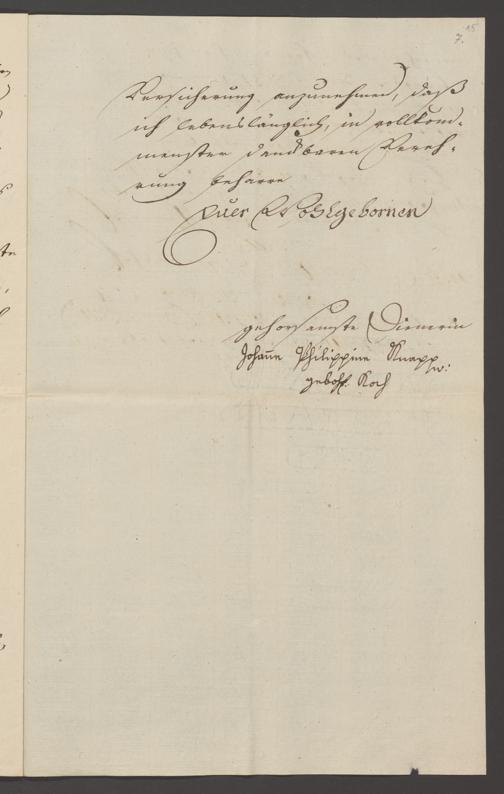 15
7.
Versicherung anzunehmen, daß
ich lebenslänglich, in vollkom-
menster dankbaren Vereh-
rung beharre
Euer Wohlgebornen
gehorsamste Dienerin
Johane Philippine Knapp
w:
gebohr. Koch